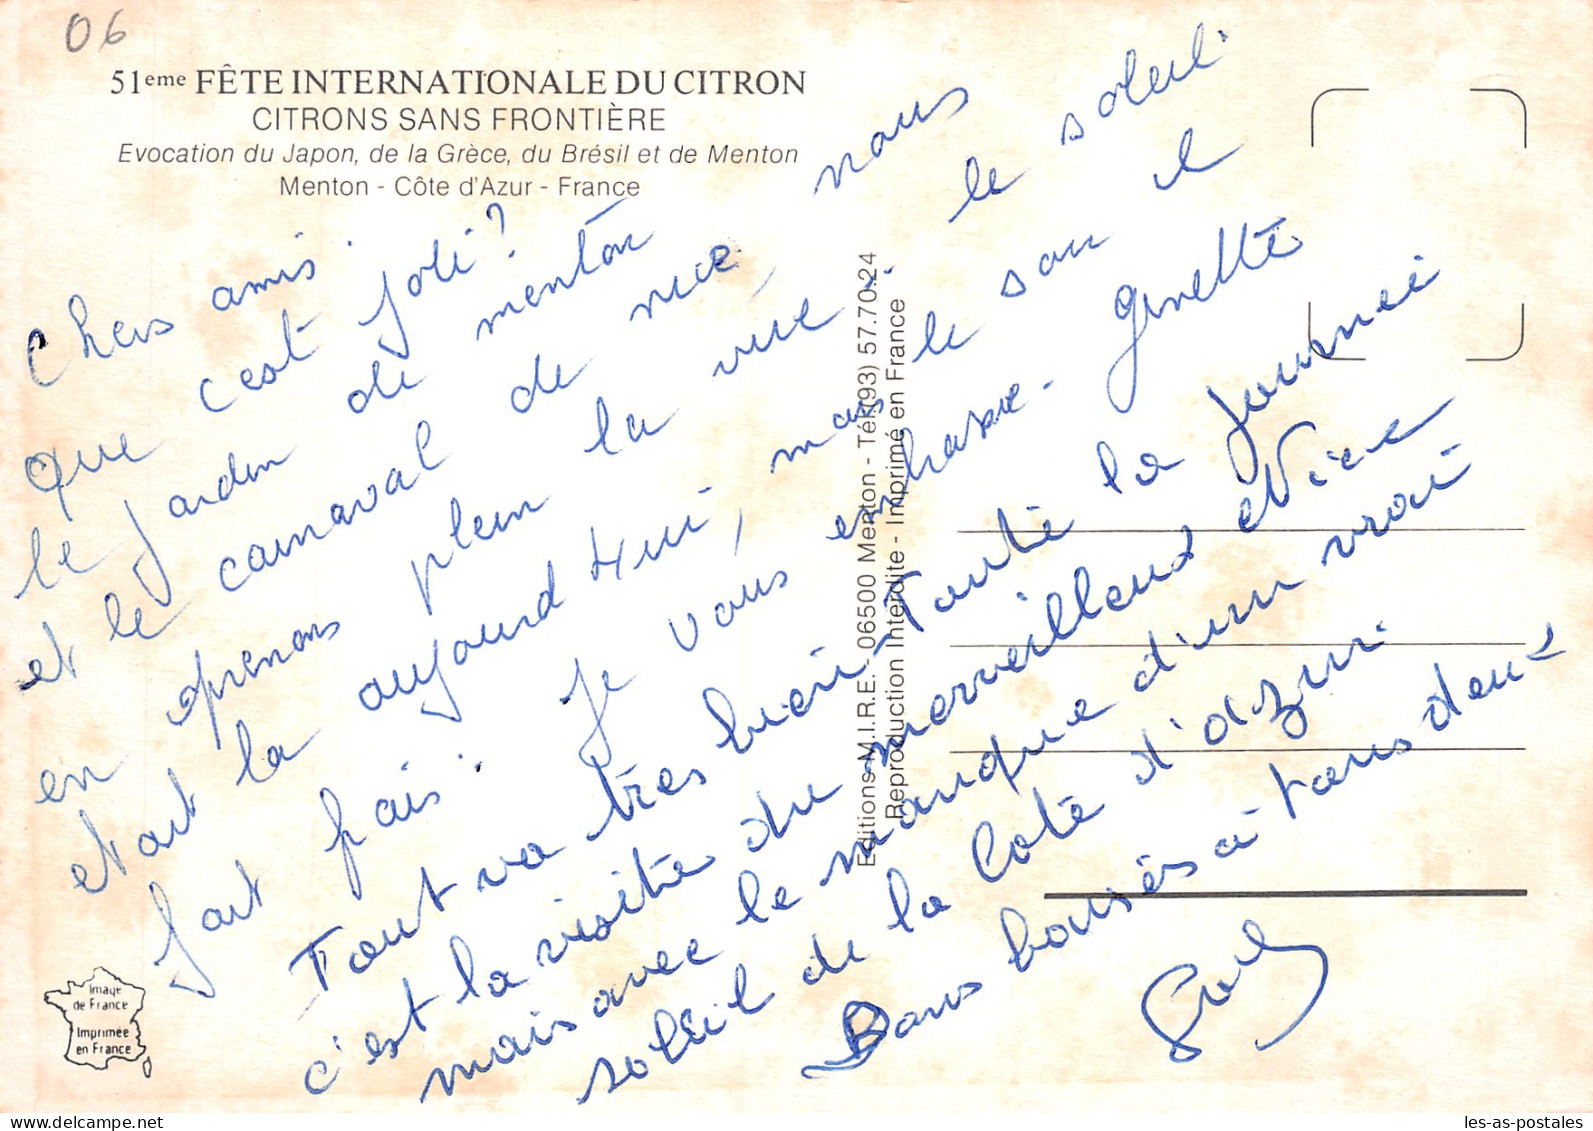 06
51eme FÊTE INTERNATIONALE DU CITRON
CITRONS SANS FRONTIÈRE
Evocation du Japon, de la Grèce, du Brésil et de Menton
Menton - Côte d'Azur - France
Chers amis
que c'est joli?
le Jardin de menton
et le carnaval de nice nous
en prenons plein la vue. le soleil
etait la aujourd hui, mais le soir il
fait frais. Je vous embrasse. Ginette
Tout va très bien Toute la journee
c'est la visite du merveilleux Nice
mais avec le manque d'un vrai
soleil de la Cote d'azur.
Bons baisés à tous deux
Editions M.I.R.E. - 06500 Menton - Tél. (93) 57.70.24
Reproduction Interdite - Imprimé en France
Image
de France
Imprimée
en France
les-as-postales